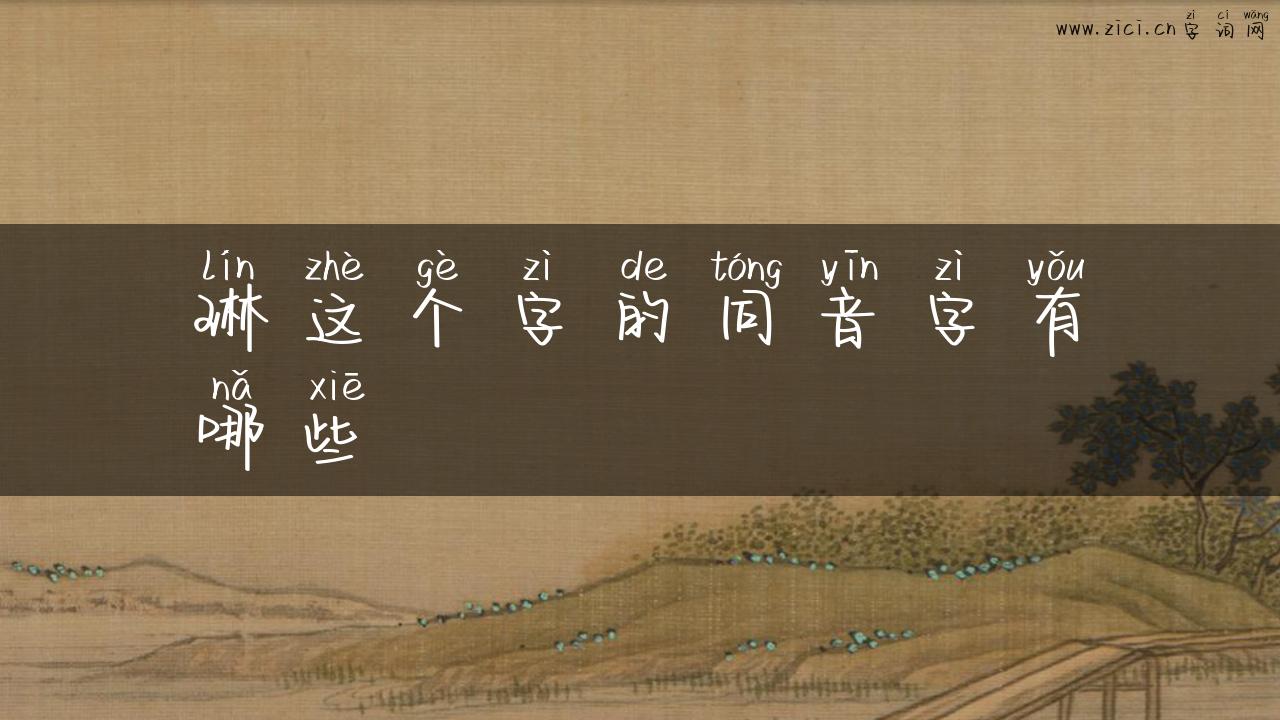 www.zici.cn
zì cí wǎng
字词网
lín zhè gè zì de tóng yīn zì yǒu
琳这个字的同音字有
nǎ xiē
哪些